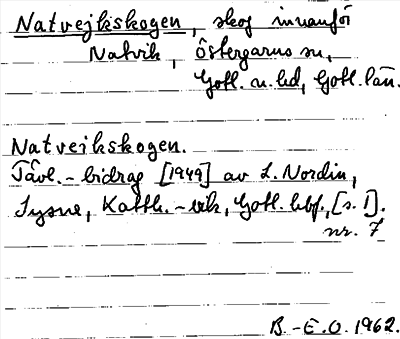 Natvejkskogen, skog innanför
Natvik, Östergarns sn,
Gotl. n. hd, Gotl. län.
Natvejkskogen.
Tävl.-bidrag [1949] av L. Nordin,
Sysne, Katth.-vik, Gotl. hbf., [s. 1].
nr. 7
B.-E. O. 1962.